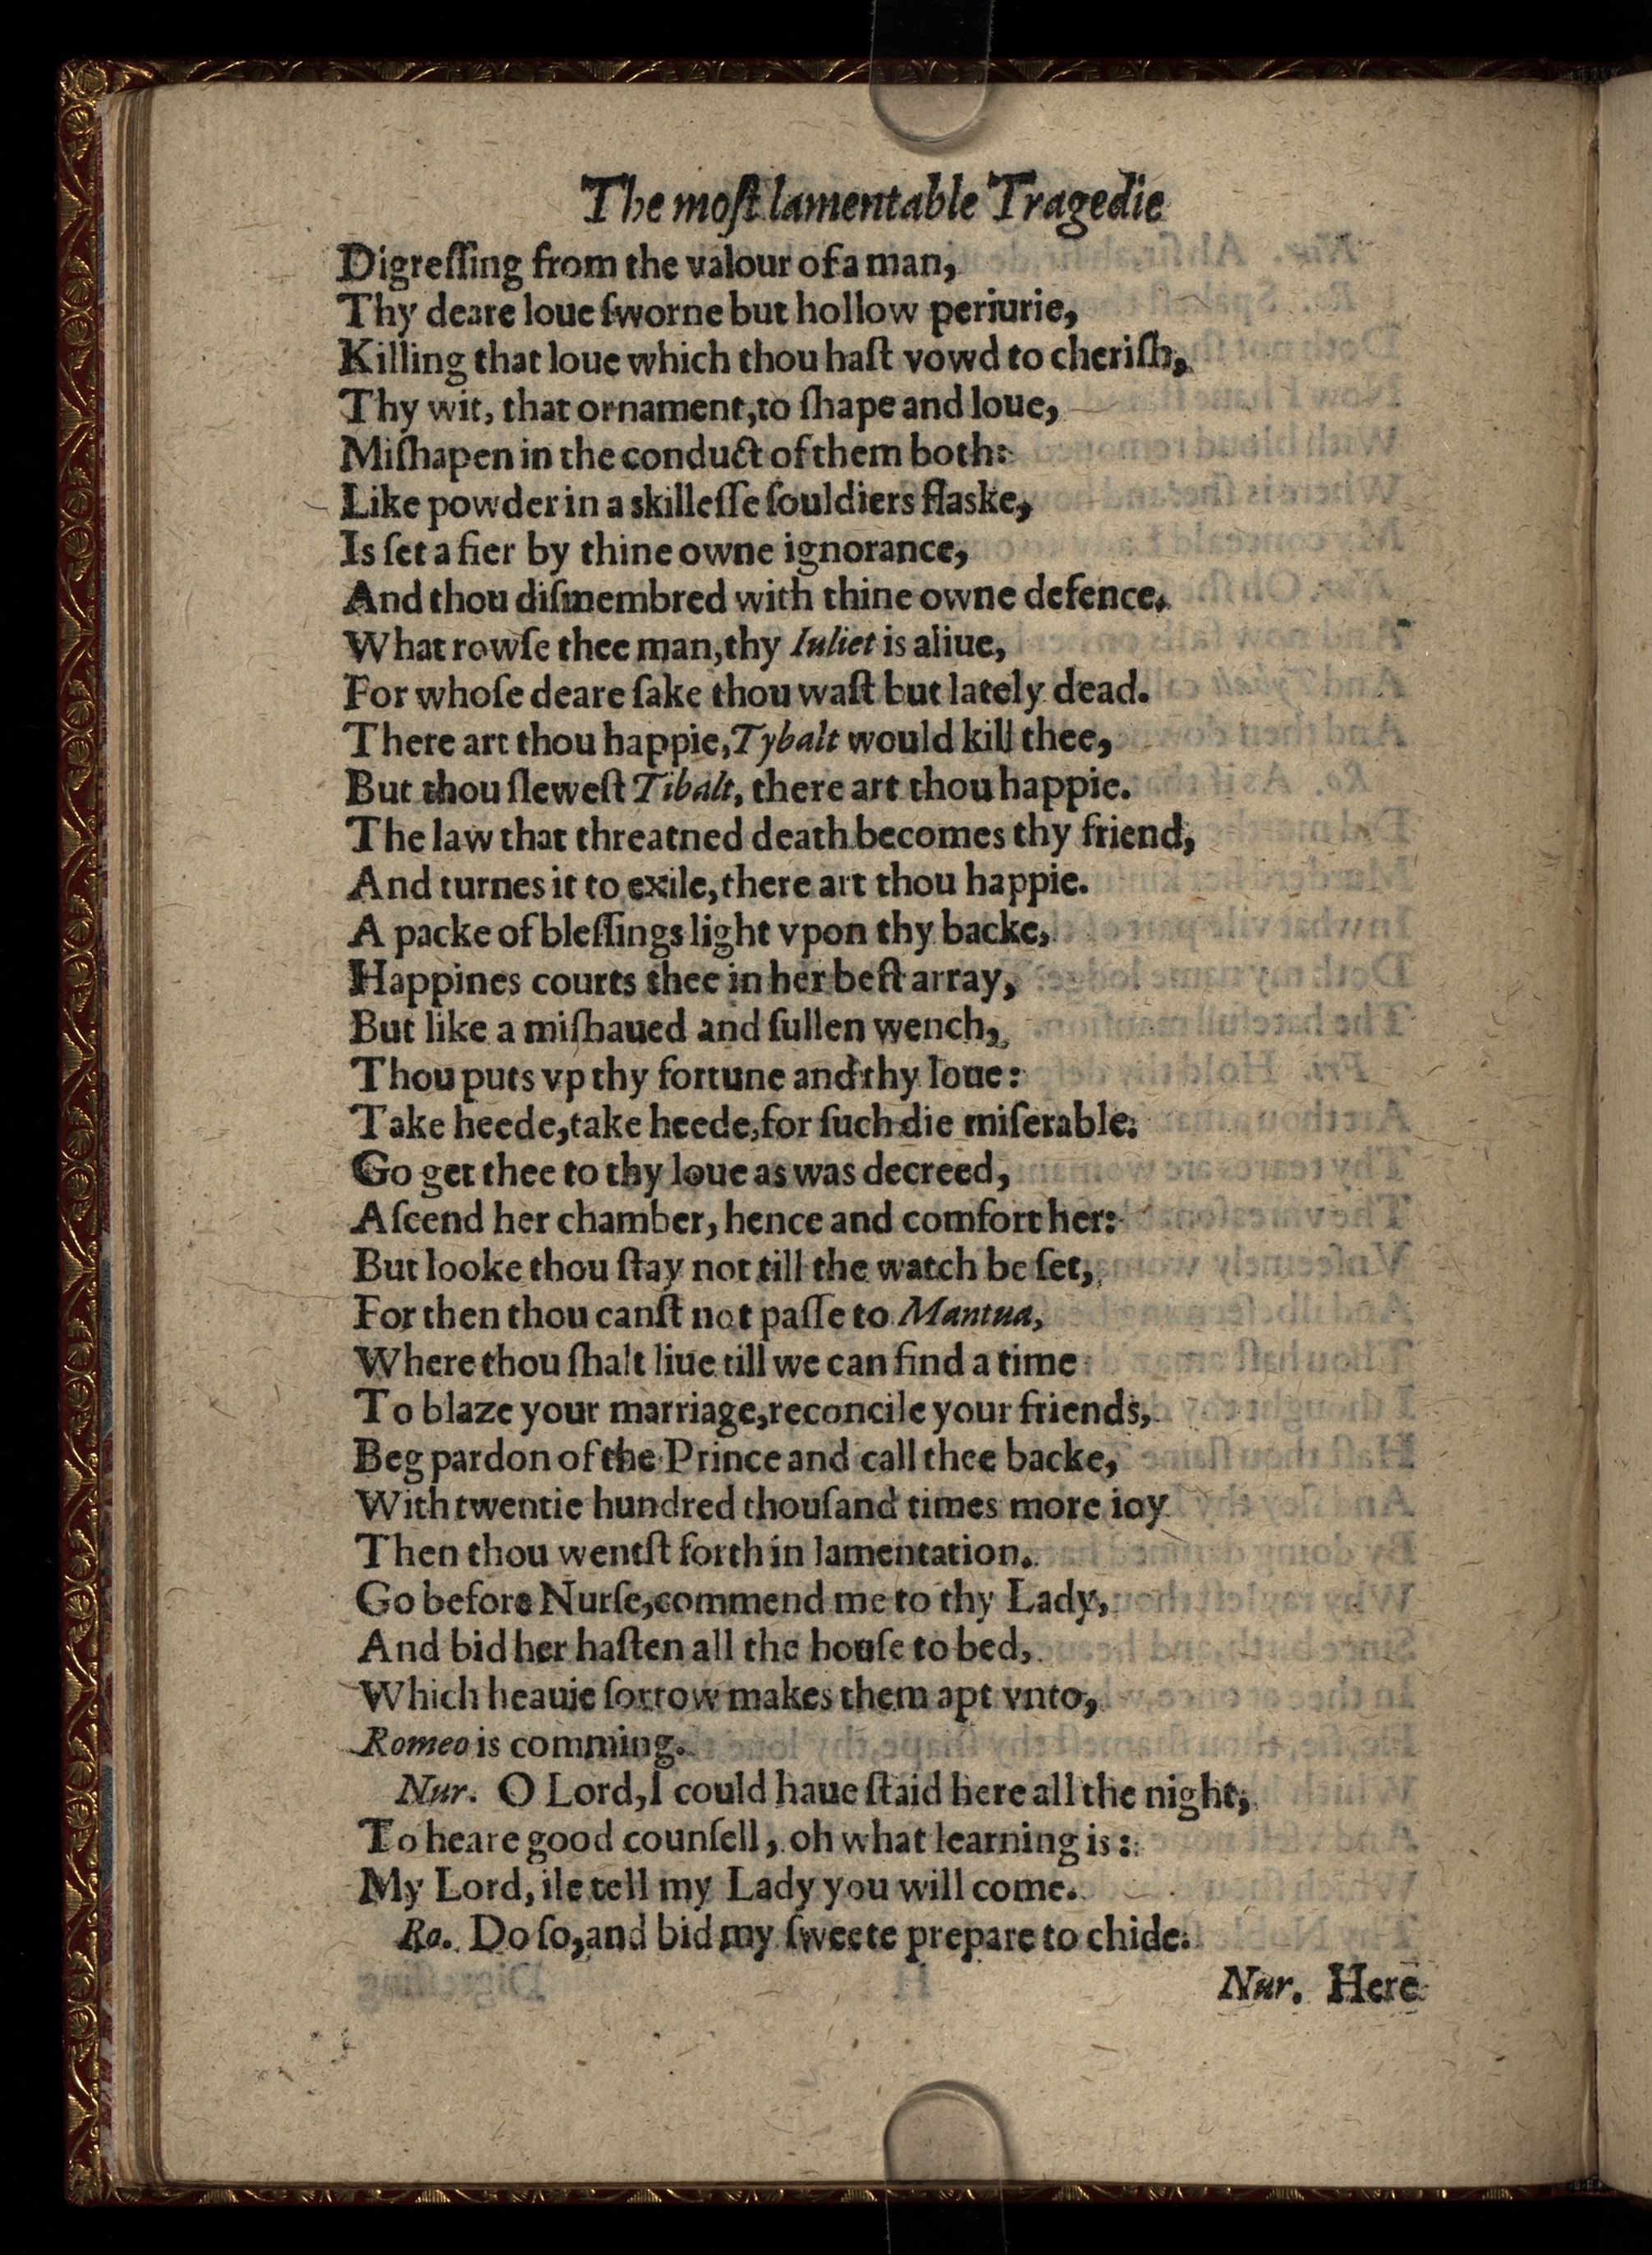 The moſt lamentable Tragedie
Digreſſing from the valour of a man,
Thy deare loue ſworne but hollow periurie,
Killing that loue which thou haſt vowd to cheriſh,
Thy wit, that ornament, to ſhape and loue,
Miſhapen in the conduct of them both:
Like powder in a skilleſſe ſouldiers flaske,
Is ſet a fier by thine owne ignorance,
And thou diſmembred with thine owne defence.
What rowſe thee man, thy Iuliet is aliue,
For whoſe deare ſake thou waſt but lately dead.
There art thou happie, Tybalt would kill thee,
But thou ſleweſt Tibalt, there art thou happie.
The law that threatned death becomes thy friend,
And turnes it to exile, there art thou happie.
A packe of bleſſings light vpon thy backe,
Happines courts thee in her beſt array,
But like a miſhaued and ſullen wench,
Thou puts vp thy fortune and thy loue:
Take heede, take heede, for ſuch die miſerable.
Go get thee to thy loue as was decreed,
Aſcend her chamber, hence and comfort her:
But looke thou ſtay not till the watch be ſet,
For then thou canſt not paſſe to Mantua,
Where thou ſhalt liue till we can find a time
To blaze your marriage, reconcile your friends,
Beg pardon of the Prince and call thee backe,
With twentie hundred thouſand times more ioy
Then thou wentſt forth in lamentation.
Go before Nurſe, commend me to thy Lady,
And bid her haſten all the houſe to bed,
Which heauie ſorrow makes them apt vnto,
Romeo is comming.
Nur. O Lord, I could haue ſtaid here all the night,
To heare good counſell, oh what learning is:
My Lord, ile tell my Lady you will come.
Ro. Do ſo, and bid my ſweete prepare to chide.
Nur. Here